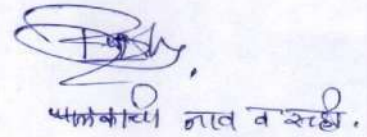 पालकाची नाव व सही.